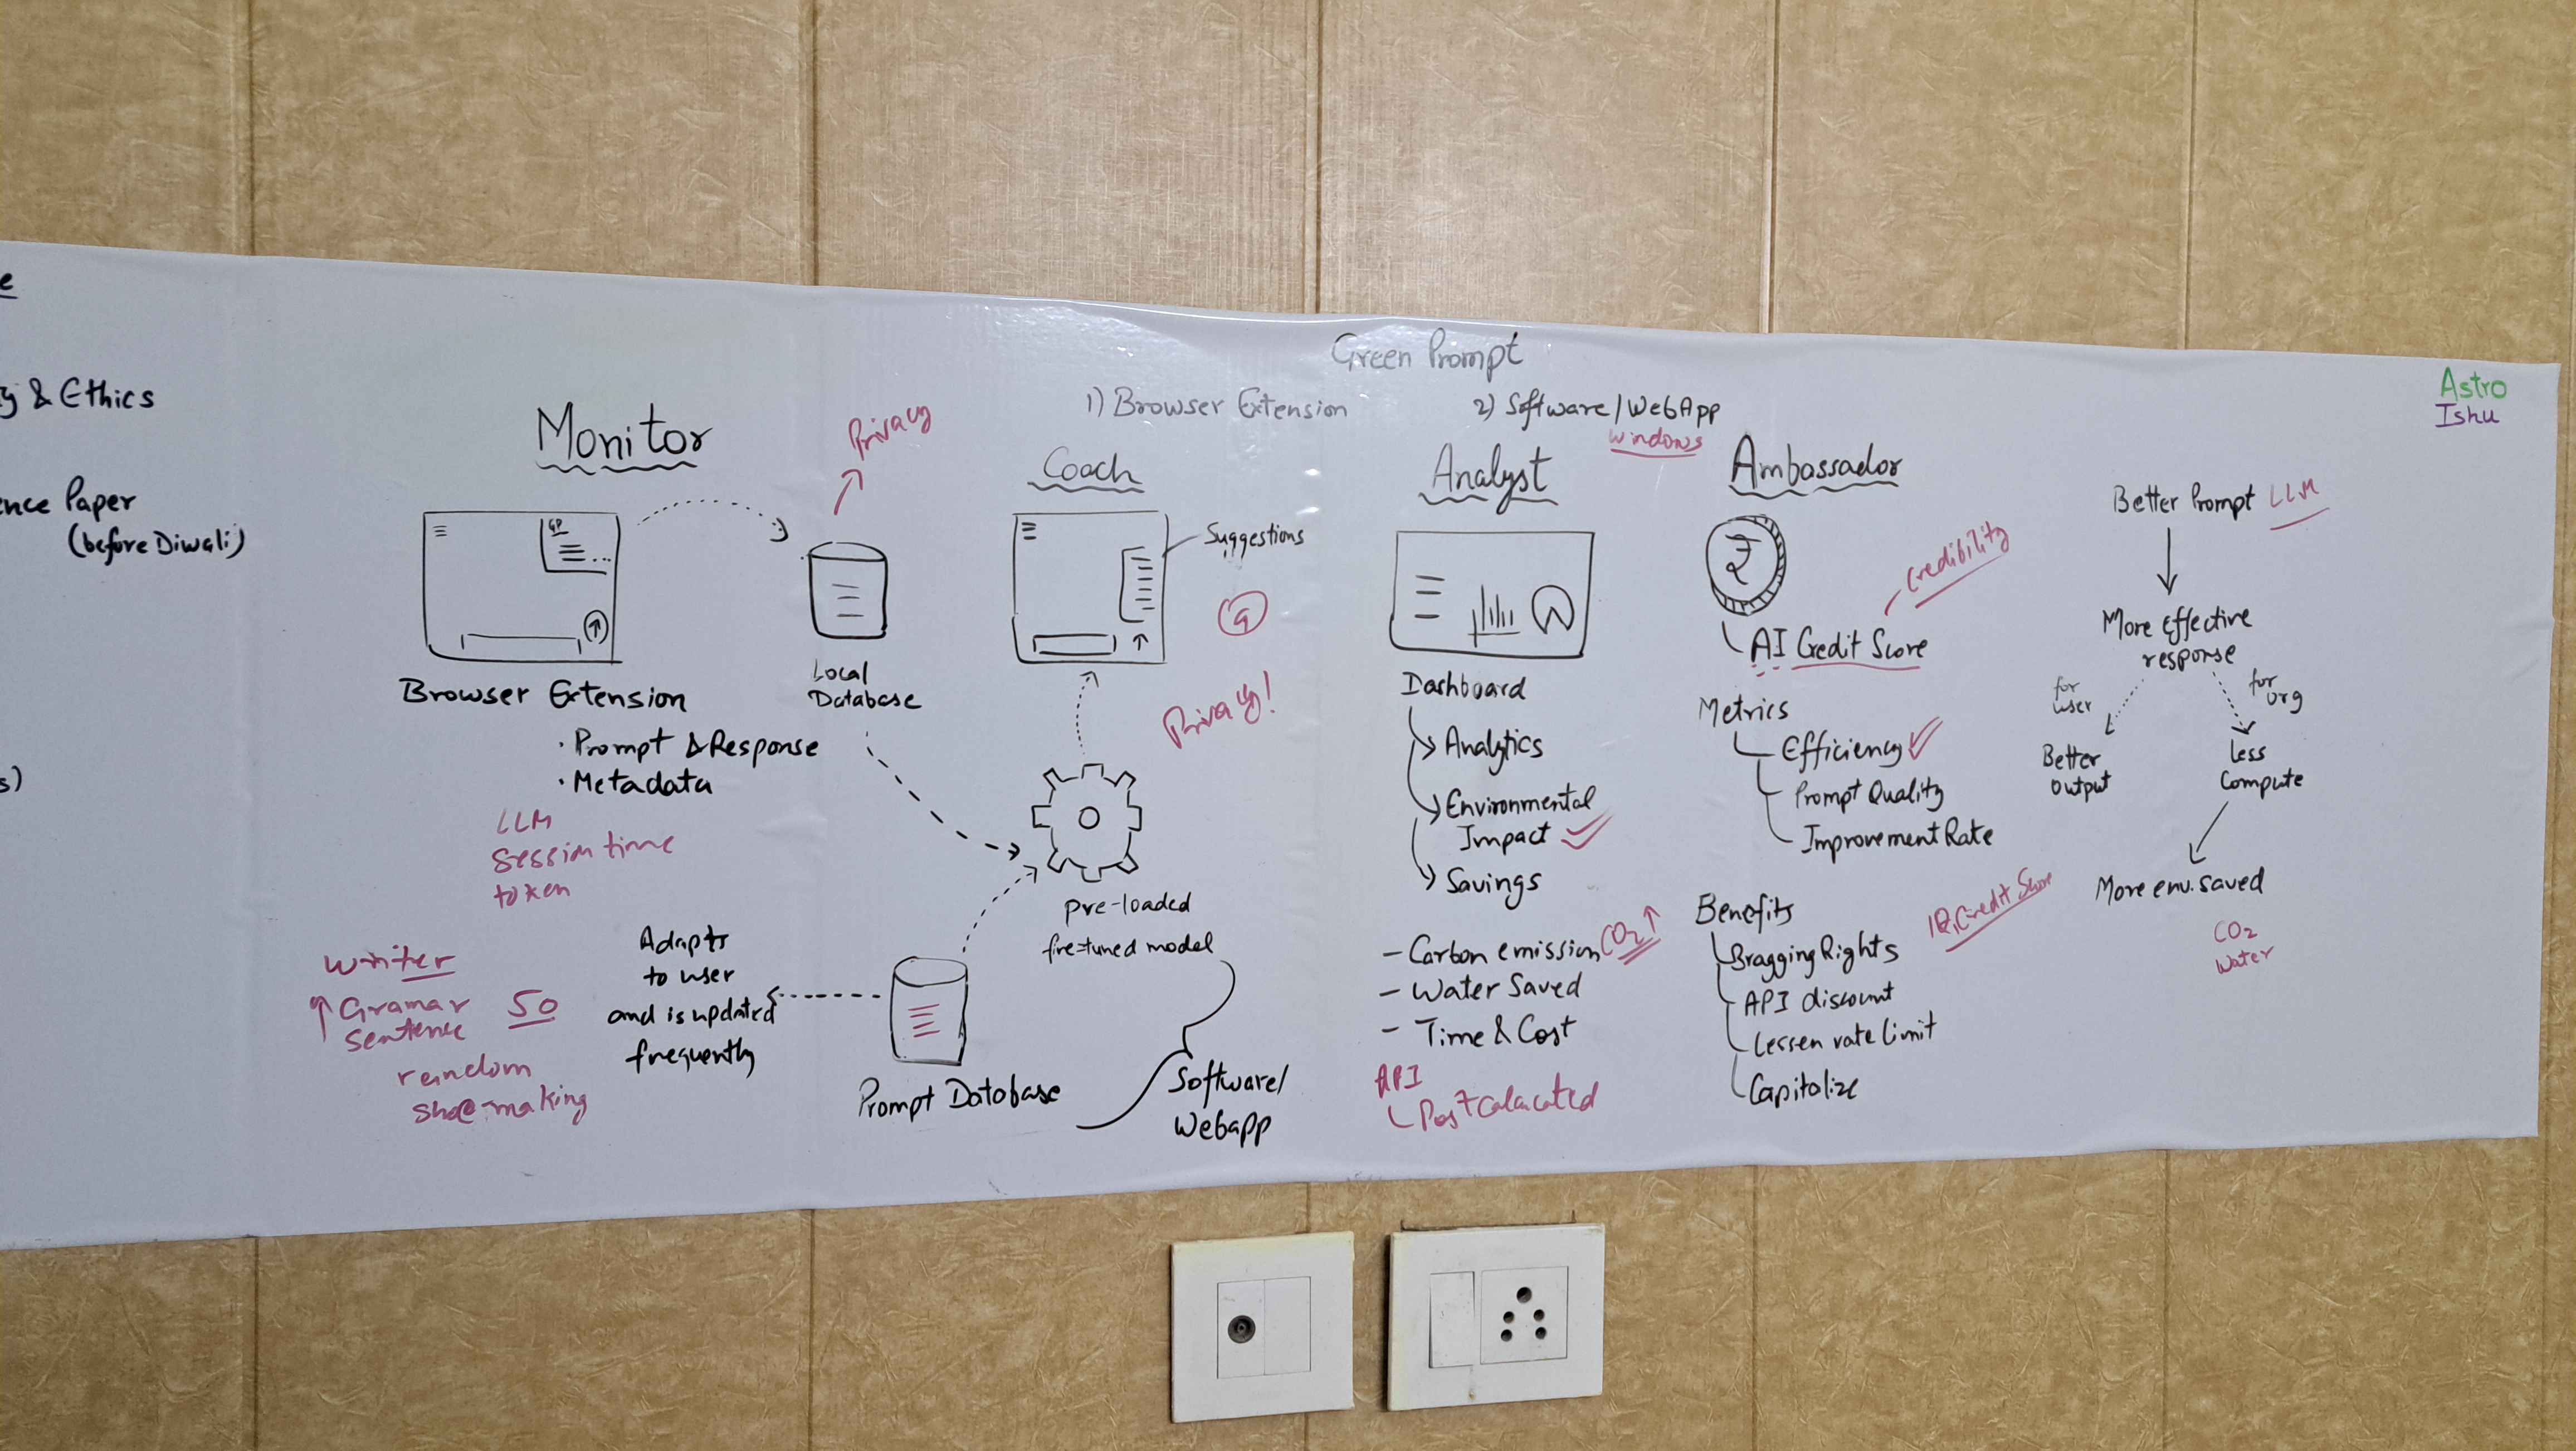 e
& Ethics
ence Paper
(before Diwali)
s)
Green Prompt
1) Browser Extension
2) Software/WebApp
Windows
Astro
Ishu
Monitor
GP
Browser Extension
· Prompt & Response
· Metadata
LLM
Session time
token
Privacy
Local
Database
Writer
↑ Gramar
Sentence
50
Adapts
to user
and is updated
frequently
Prompt Database
Coach
Suggestions
G
Privacy!
pre-loaded
fine-tuned model
Software/
Webapp
Analyst
Dashboard
Analytics
Environmental
Impact ✓
Savings
- Carbon emission CO2 ↑
- Water Saved
- Time & Cost
API
Ambassador
₹
Credibility
AI Credit Score
Metrics
Efficiency ✓
Prompt Quality
Improvement Rate
Benefits
Credit Score
Bragging Rights
API discount
Lessen rate limit
Capitalize
Better Prompt LLM
More effective
response
for
user
for
org
Better
Output
Less
Compute
More env. saved
CO2
Water